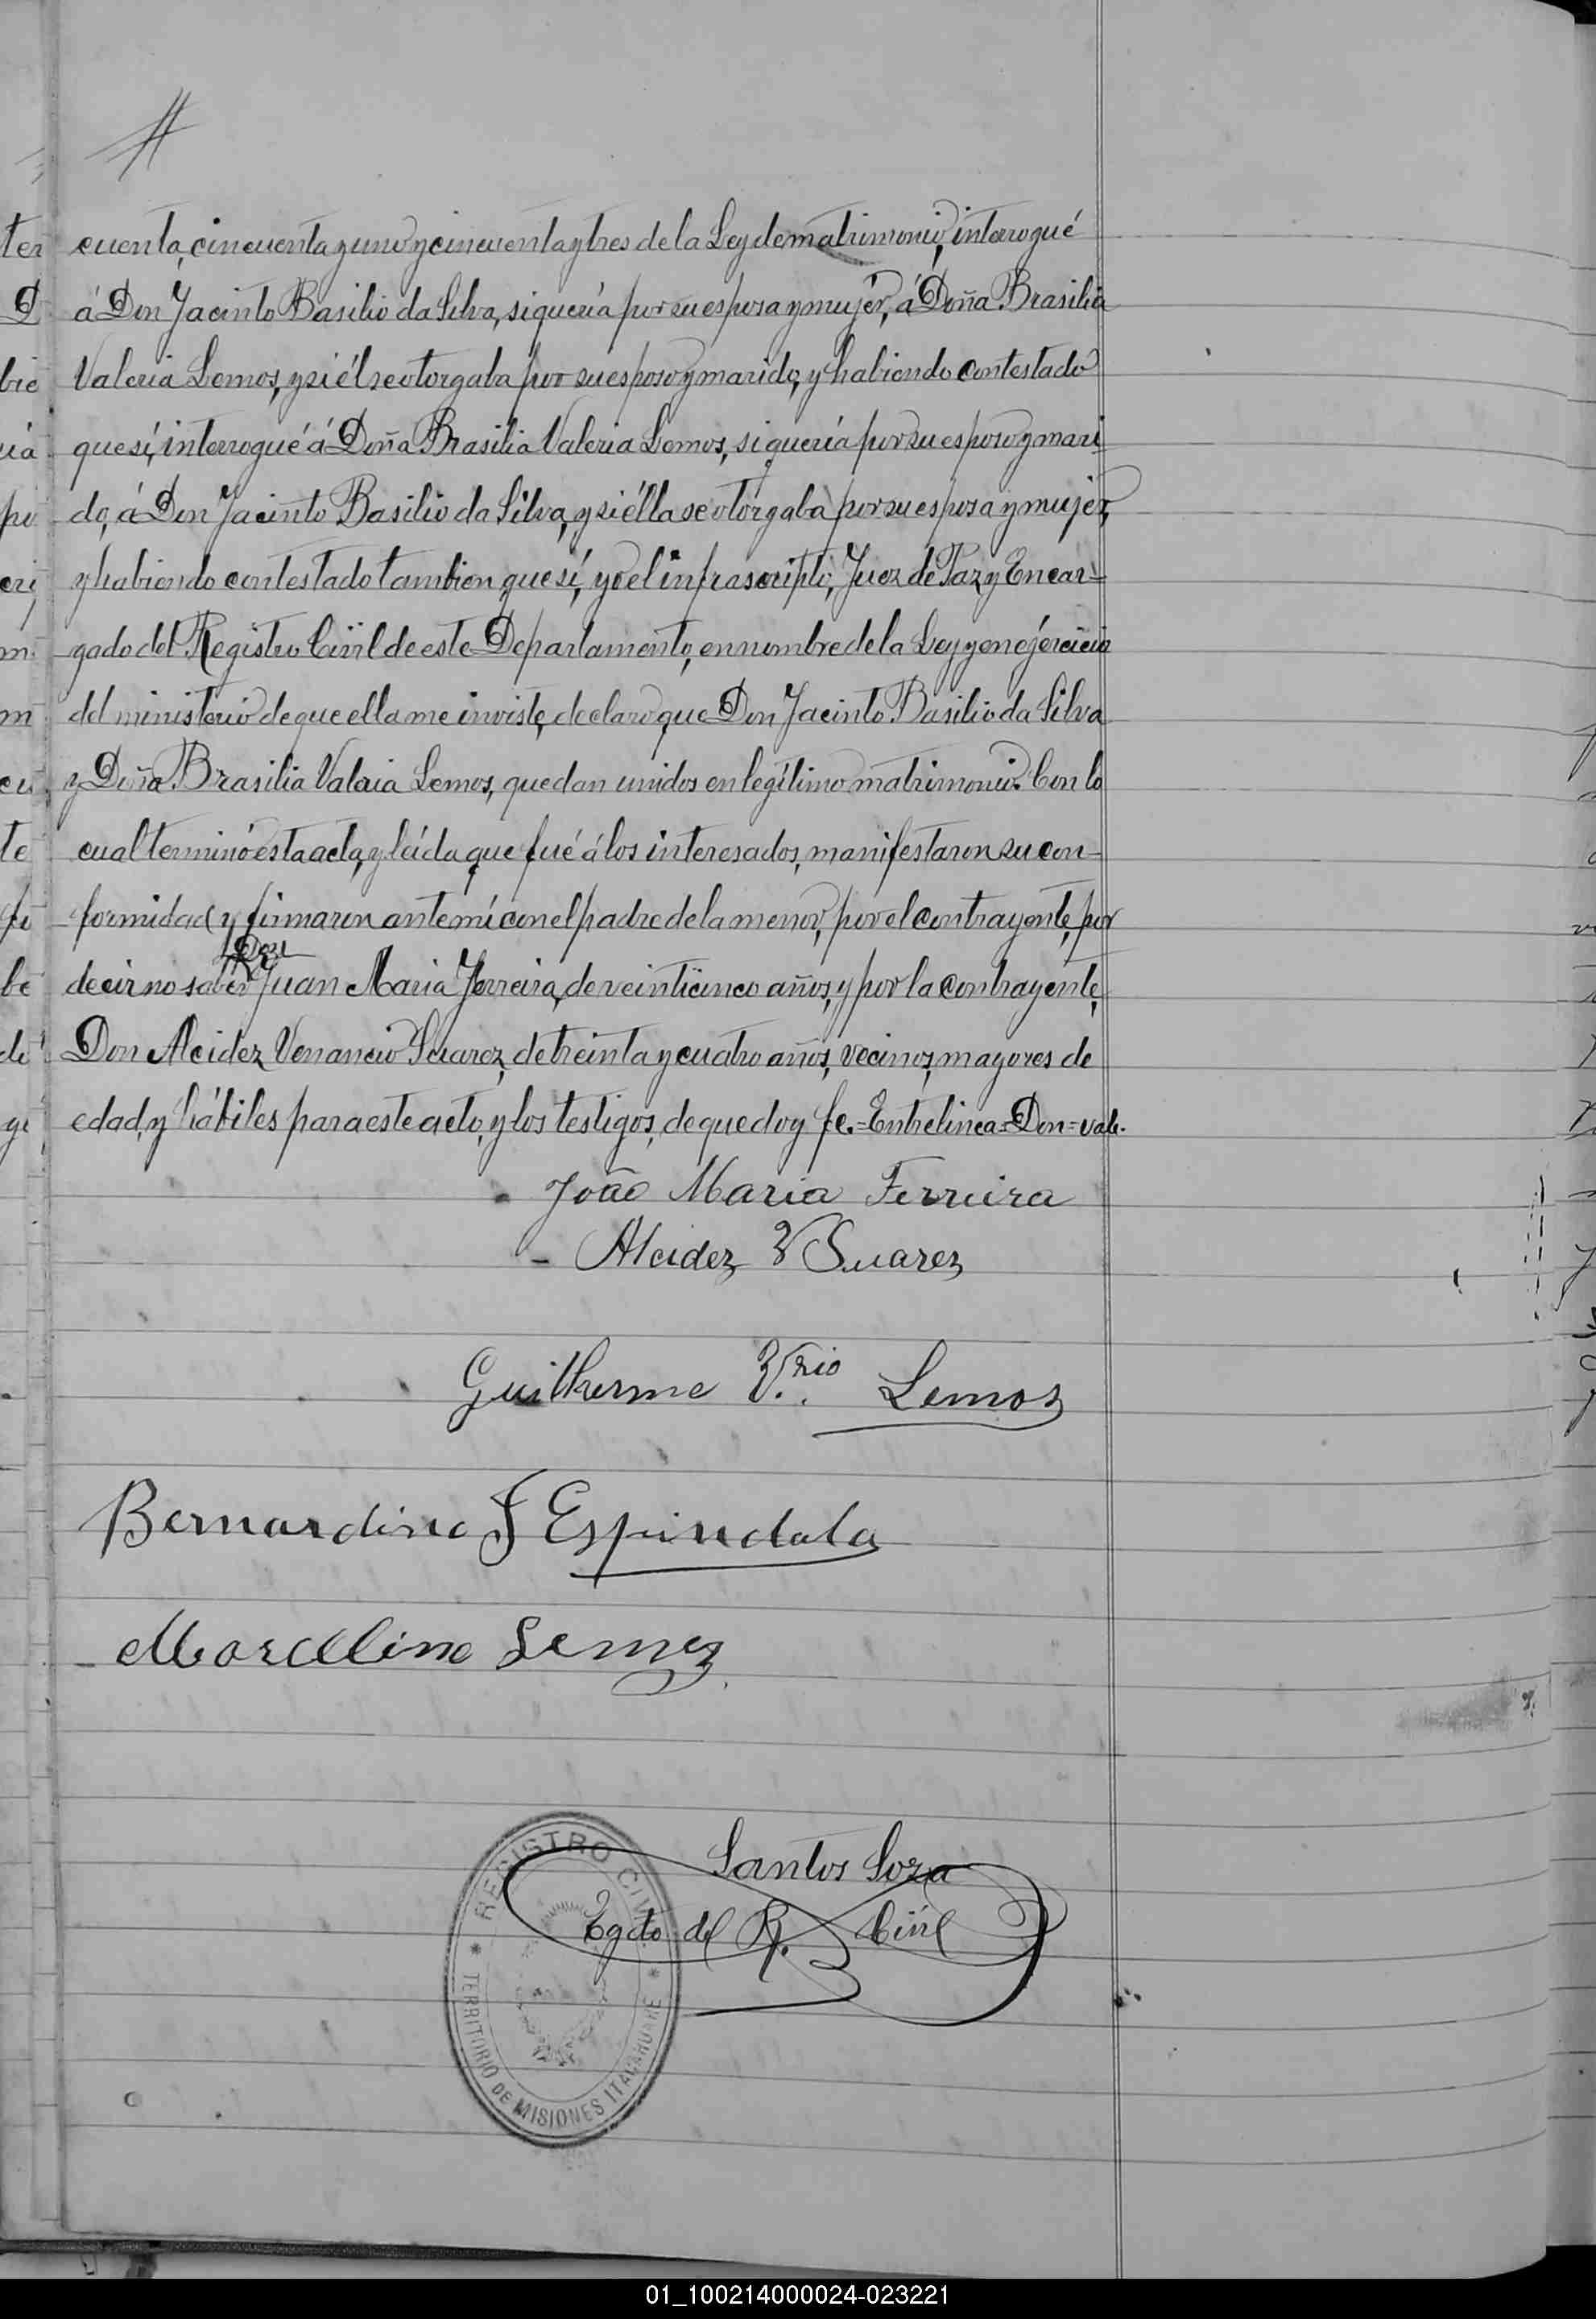 cuenta, cincuenta y uno y cincuenta y tres de la Ley de matrimonio, interrogué
á Don Jacinto Basilio da Silva, si quería por su esposa y mujer, á Doña Brasilia
Valeria Lemos, y si él se otorgaba por su esposo y marido, y habiendo contestado
que sí, interrogué á Doña Brasilia Valeria Lemos, si quería por su esposo y mari
do, á Don Jacinto Basilio da Silva, y si élla se otorgaba por su esposa y mujer,
y habiendo contestado tambien que sí, yo el infrascripto, Juez de Paz y Encar-
gado del Registro Civil de este Departamento, en nombre de la Ley y en ejercicio
del ministerio de que ella me inviste, declaro que Don Jacinto Basilio da Silva
y Doña Brasilia Valeria Lemos, quedan unidos en legítimo matrimonio. Con lo
cual terminó esta acta, y leída que fué á los interesados, manifestaron su con-
formidad y firmaron ante mí con el padre de la menor, por el contrayente, por
Don
decir no saber Juan Maria Ferreira, de veinticinco años, y por la contrayente,
Don Alcidez Venancio Suarez, de treinta y cuatro años, vecinos, mayores de
edad, y hábiles para este acto, y los testigos, de que doy fe.=Entrelinea=Don=vale.
João Maria Ferreira
- Alcidez V Suarez
Guilherme V.rio Lemos
Bernardino F Espindola
Marcelino Lemos
Santos Soza
Egdo del R. Civil
REGISTRO CIVIL
TERRITORIO DE MISIONES ITACARUARE
01_100214000024-023221